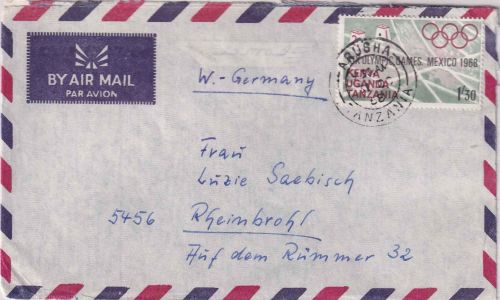 BY AIR MAIL
PAR AVION
ARUSHA
TANZANIA
OLYMPIC GAMES, MEXICO 1968
KENYA
UGANDA
TANZANIA
1/30
W.-Germany
Frau
Luzie Saebisch
5456 Rheinbrohl
Auf dem Rümmer 32